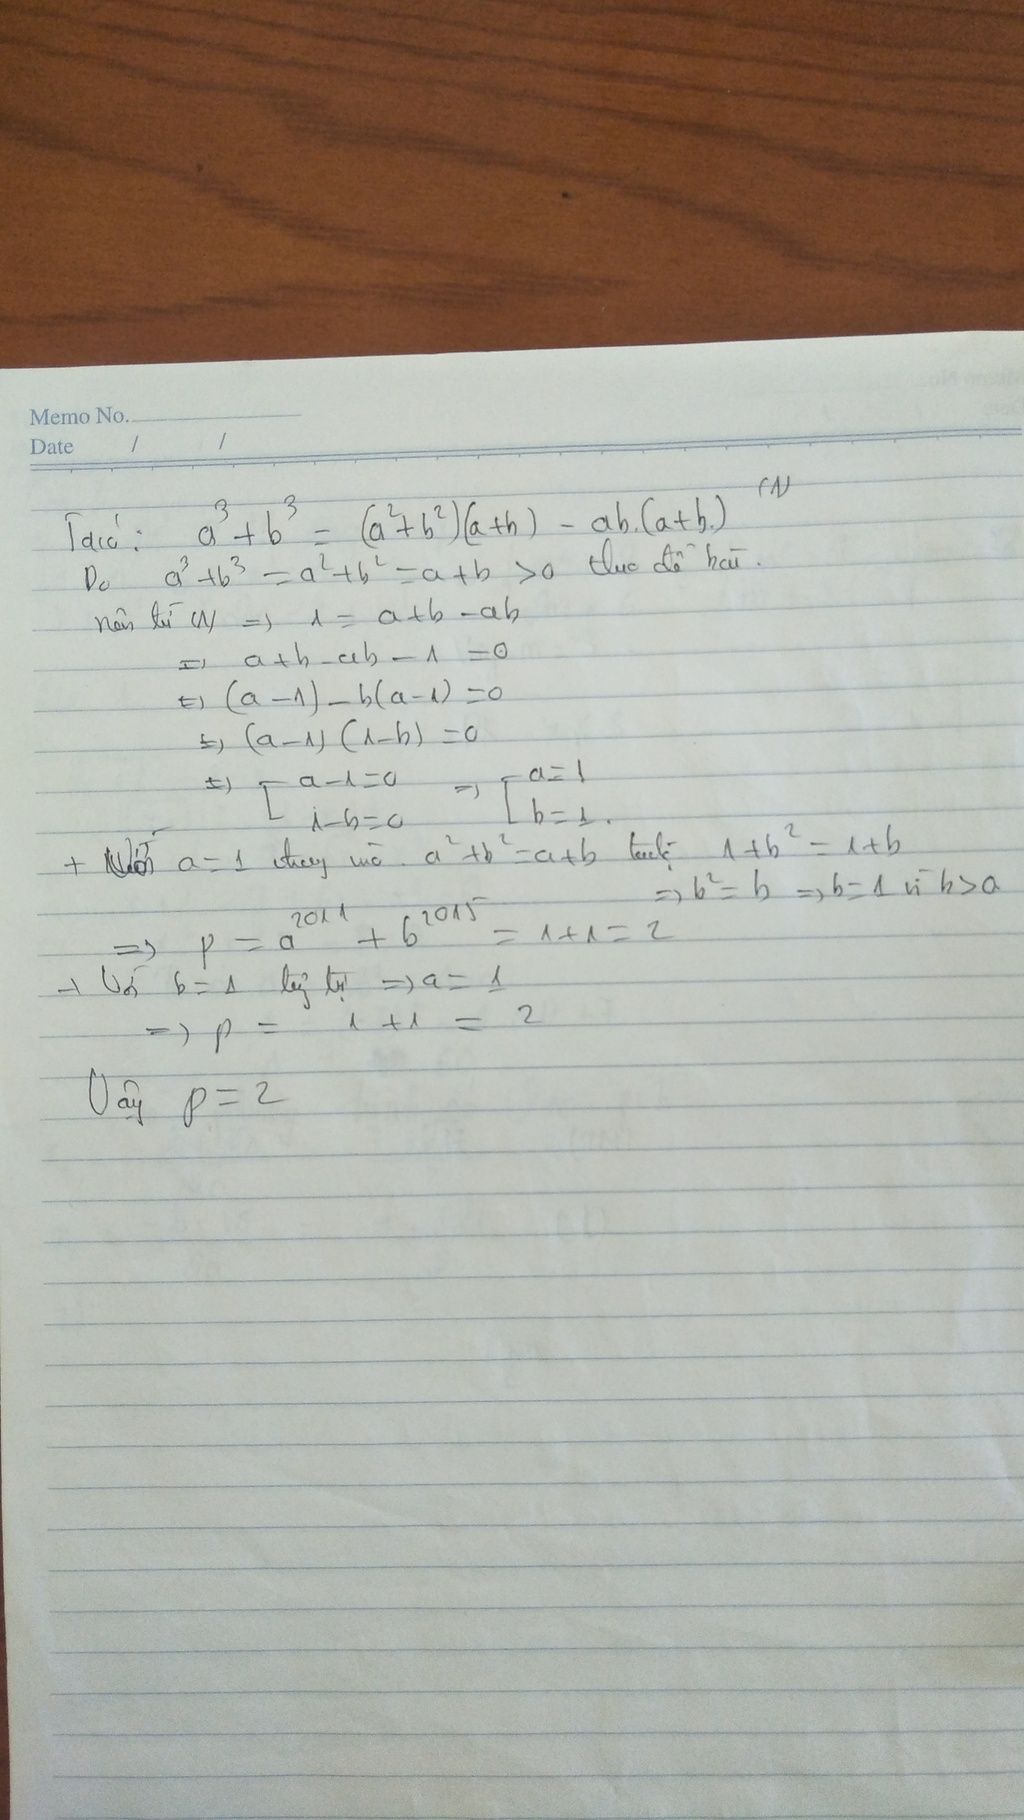 Memo No.
Date / /
Ta có: a³ + b³ = (a² + b²)(a + b) - ab.(a + b) (1)
Do a³ + b³ = a² + b² = a + b > 0 theo đề bài.
nên từ (1) => 1 = a + b - ab
=> a + b - ab - 1 = 0
<=> (a - 1) - b(a - 1) = 0
<=> (a - 1)(1 - b) = 0
<=> [ a - 1 = 0 => [ a = 1
1 - b = 0 b = 1.
+ Với a = 1 thay vào a² + b² = a + b 1 + b² = 1 + b
=> b² = b => b = 1 vì b > 0
=> p = a²⁰¹¹ + b²⁰¹⁵ = 1 + 1 = 2
+ Với b = 1 tự => a = 1
=> p = 1 + 1 = 2
Vậy p = 2